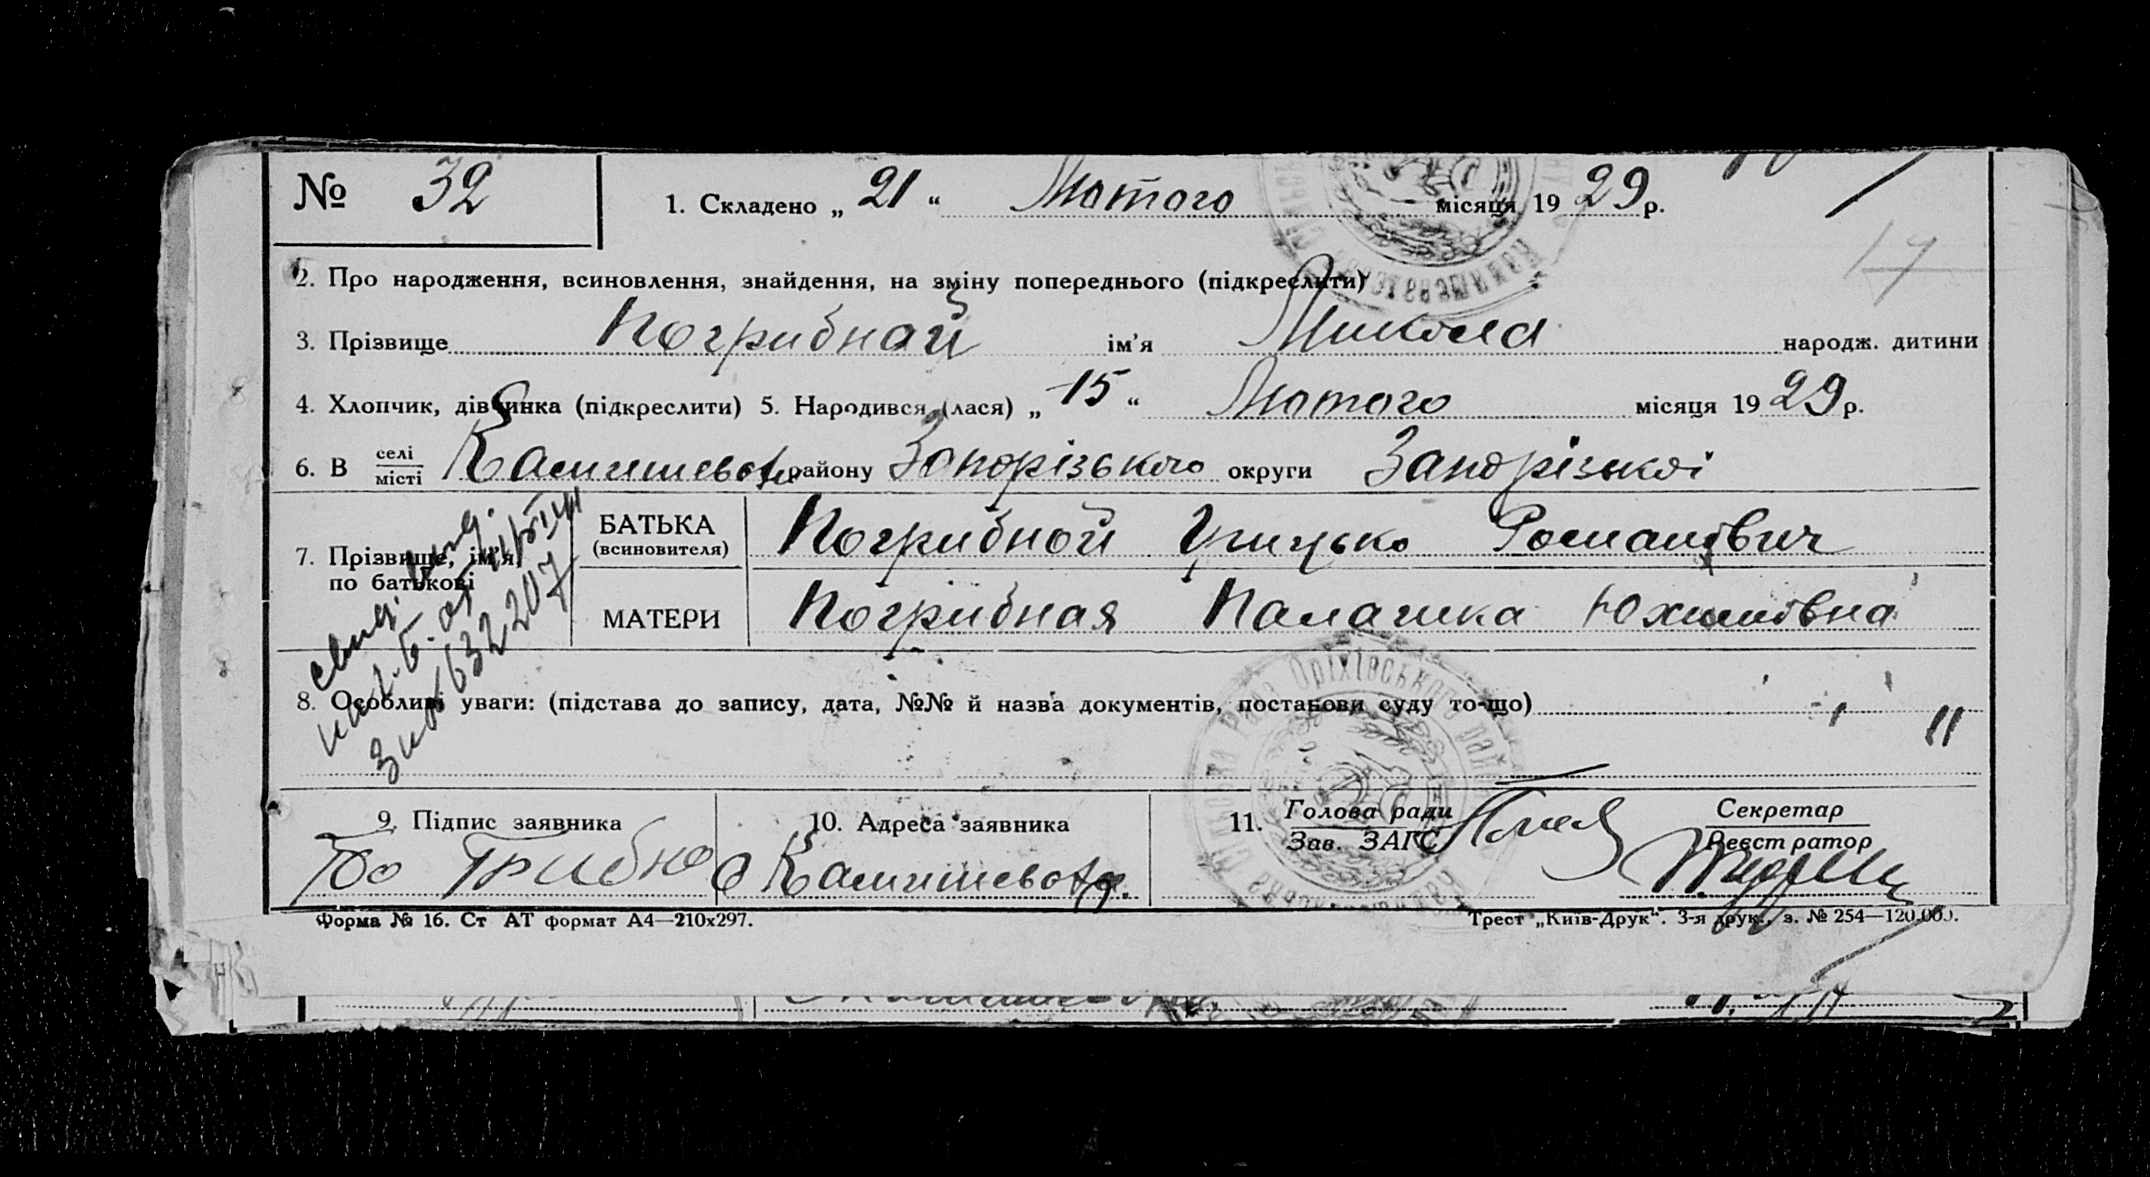 № 32 1. Складено „ 21 “ Лютого місяця 19 29 р.
17
2. Про народження, всиновлення, знайдення, на зміну попереднього (підкреслити)
3. Прізвище Погрибнай ім’я Микола народж. дитини
4. Хлопчик, дівчинка (підкреслити) 5. Народився (лася) „ 15 “ Лютого місяця 19 29 р.
6. В селі місті Камишеватц району Запорізького округи Запорізькоі
7. Прізвище, ім’я по батькові
БАТЬКА (всиновителя) Погрибной Грицько Романович
МАТЕРИ Погрибная Палагика Юхимовна
632207
8. Особливі уваги: (підстава до запису, дата, №№ й назва документів, постанови суду то-що)
9. Підпис заявника 10. Адреса заявника 11. Голова ради Зав. ЗАГС Секретар Реєстратор
По Грибно
Форма № 16. Ст АТ формат А4—210х297. Трест „Київ-Друк“. 3-я друк., з. № 254—120.000.